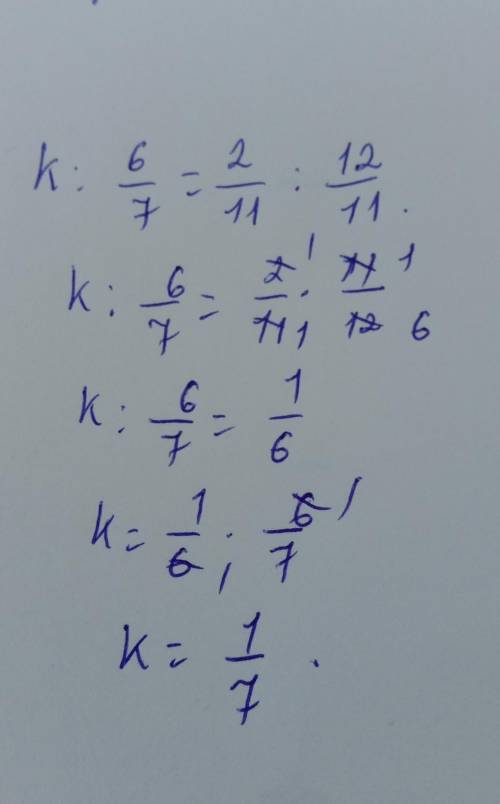 k : 6/7 = 2/11 : 12/11.
k : 6/7 = 2/11 · 11/12 1 1 1 6
k : 6/7 = 1/6
k = 1/6 · 6/7 1 1
k = 1/7.